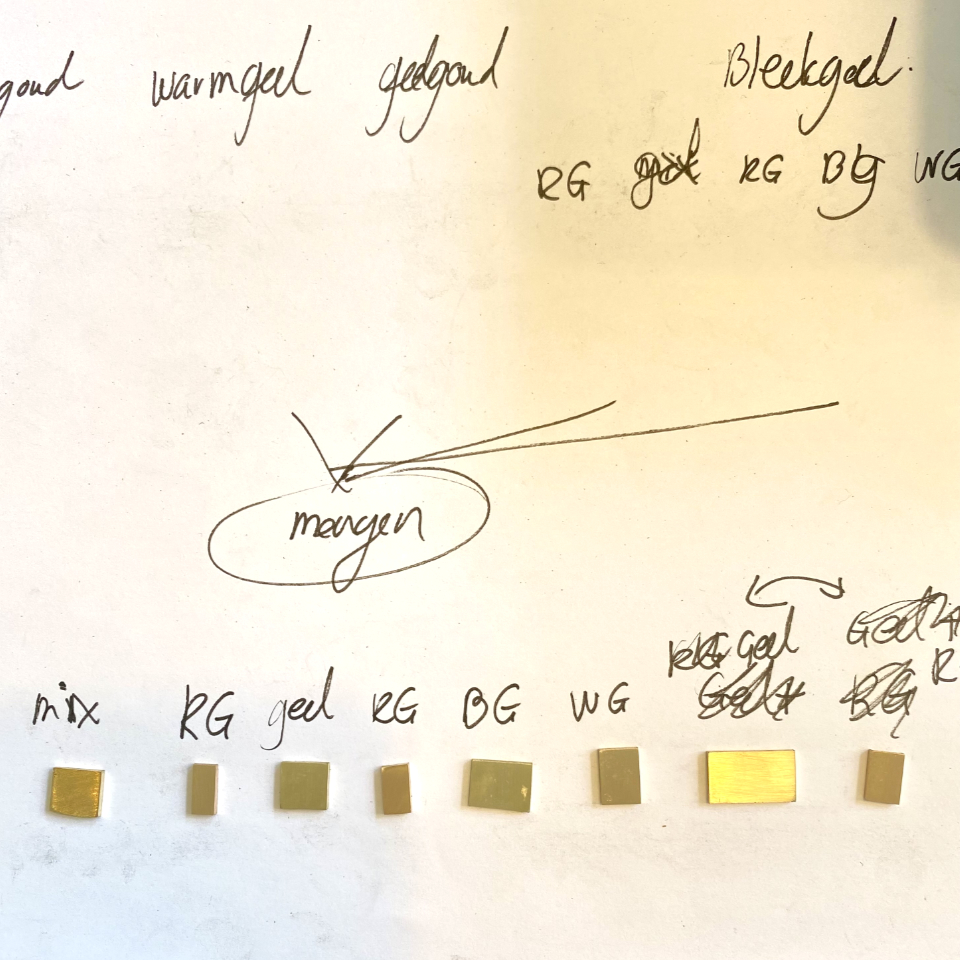 goud warmgeel geelgoud Bleekgeel.
RG RG BG WG
mengen
geel Geel
mix RG geel RG BG WG BG R